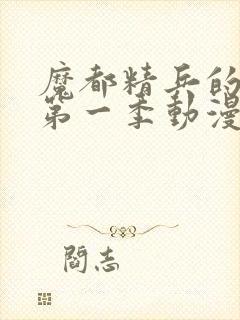 魔都精兵的
第一季動漫
閻志